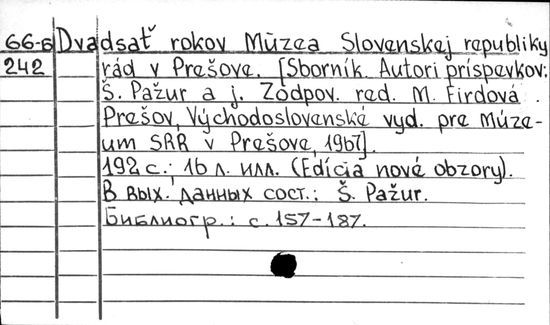 66-6 Dvadsať rokov Múzea Slovenskej republiky
242 rád v Prešove. [Sborník. Autori príspevkov:
Š. Pažur a j. Zodpov. red. M. Firdová.
Prešov, Východoslovenské vyd. pre Múze-
um SRR v Prešove, 1967].
192 с.; 16 л. илл. (Edícia nové obzory).
В вых. данных сост.: Š. Pažur.
Библиогр.: с. 157-187.